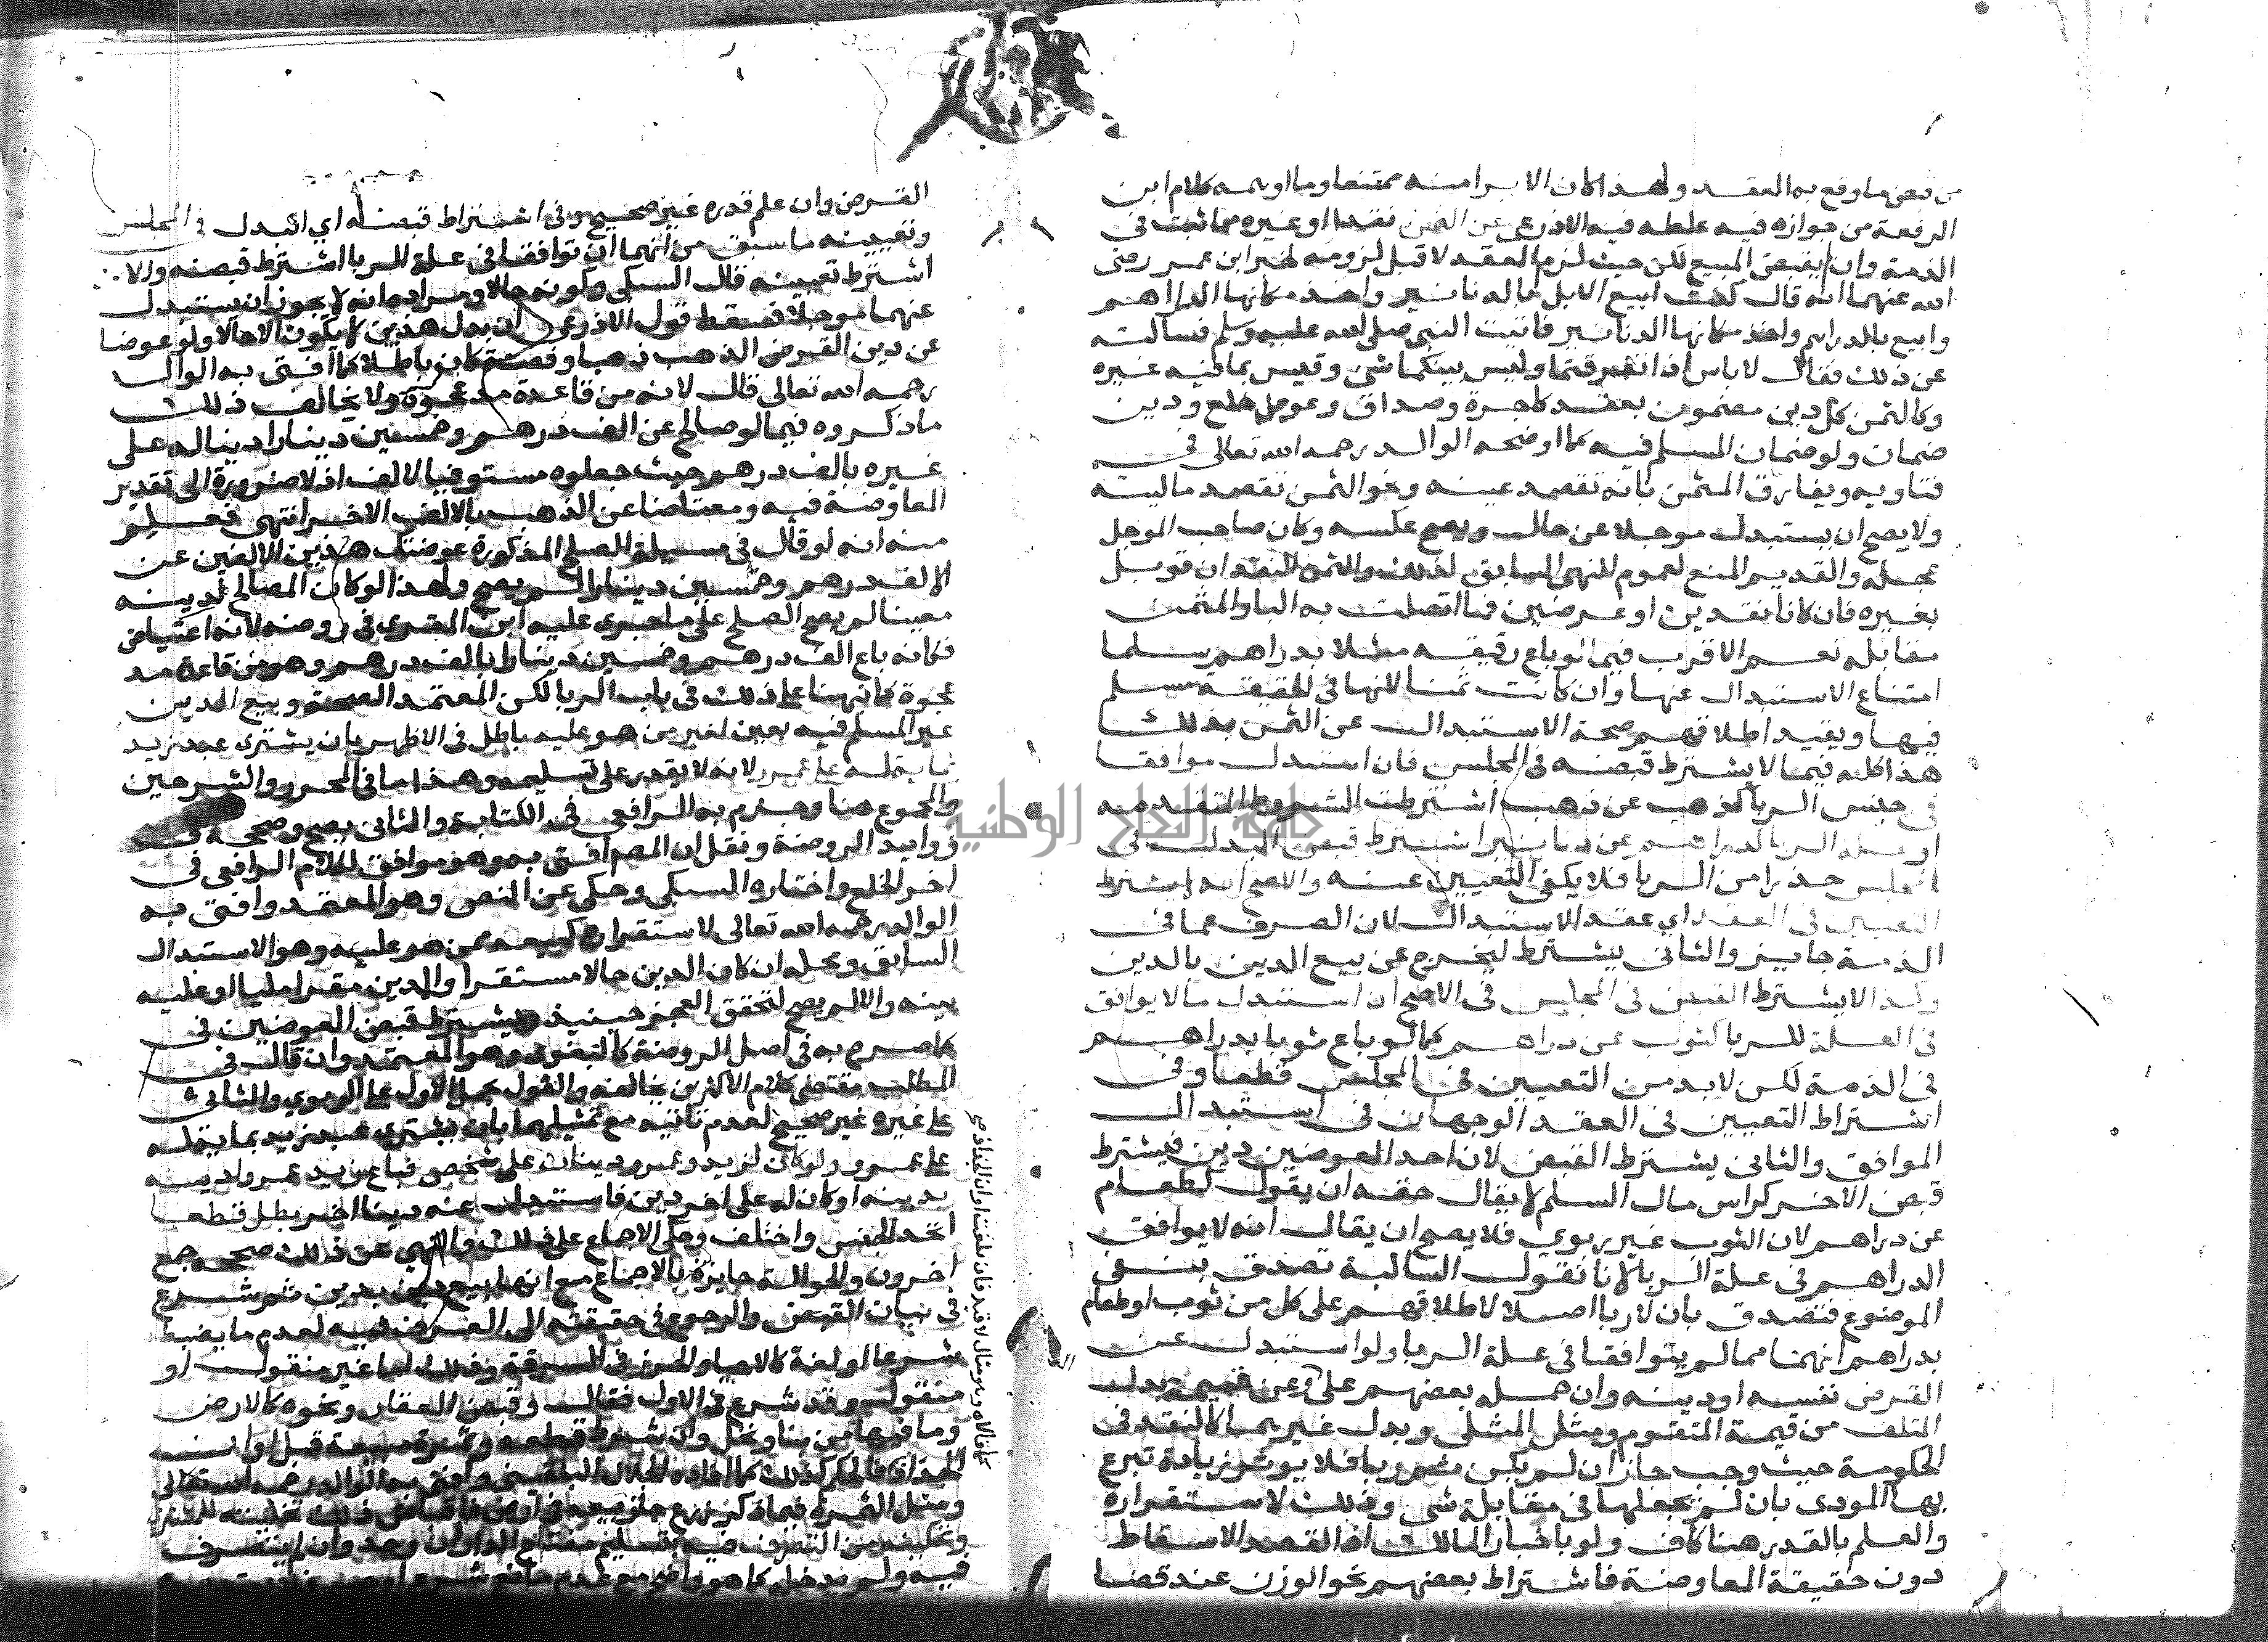 من قبض ما وقع به العقد ولهذا كان الابرا منه ممتنعا وما اوهمه كلام ابن
الرفعة من جوازه فيه غلطه فيه الاذرعي عن الثمن نقدا او غيره مما ثبت في
الذمة وان لم يقبض المبيع لكن حيث لزم العقد لا قبل لزومه لخبر ابن عمر رضي
الله عنهما انه قال كنت ابيع الابل بالدنانير واخذ مكانها الدراهم
وابيع بالدراهم واخذ مكانها الدنانير فاتيت النبي صلى الله عليه وسلم فسالته
عن ذلك فقال لا باس اذا تفرقتما وليس بينكما شي وقيس بما فيه غيره
وكالثمن كل دين مضمون بعقد كاجرة وصداق وعوض خلع ودين
ضمان ولو ضمان المسلم فيه كما اوضحه الوالد رحمه الله تعالى في
فتاويه ويفارق المثمن بانه تقصد عينه ونحو الثمن تقصد ماليته
ولا يصح ان يستبدل موجلا عن حال ويصح عكسه وكان صاحب الموجل
عجله والقديم المنع لعموم النهي السابق لذلك والثمن النقد ان قوبل
بغيره فان كانا نقدين او عرضين فما اتصلت به البا والمثمن
مقابله نعم الاقرب فيما لو باع رقيقه مثلا بدراهم سلما
امتناع الاستبدال عنها وان كانت ثمنا لانها في الحقيقة مسلم
فيها ويقيد اطلاقهم صحة الاستبدال عن الثمن بذلك
هذا كله فيما لا يشترط قبضه في المجلس فان استبدل موافقا
في جنس الربا كذهب عن ذهب اشترطت الشروط المتقدمة
او علة الربا كدراهم عن دنانير اشترط قبض البدل في
المجلس حذرا من الربا فلا يكفي التعيين عنه والاصح انه لا يشترط
التعيين في العقد اي عقد الاستبدال لان الصرف عما في
الذمة جايز والثاني يشترط ليخرج عن بيع الدين بالدين
وكذا لا يشترط القبض في المجلس في الاصح ان استبدل ما لا يوافق
في العلة للربا كثوب عن دراهم كما لو باع ثوبا بدراهم
في الذمة لكن لا بد من التعيين في المجلس قطعا وفي
اشتراط التعيين في العقد الوجهان في استبدال
الموافق والثاني يشترط القبض لان احد العوضين دين فيشترط
قبض الاخر كراس مال السلم لا يقال حقه ان يقول كطعام
عن دراهم لان الثوب غير ربوي فلا يصح ان يقال انه لا يوافق
الدراهم في علة الربا لانا نقول السالبة تصدق بنفي
الموضوع فتصدق بان لا ربا اصلا لاطلاقهم على كل من ثوب او طعام
بدراهم انهما مما لم يتوافقا في علة الربا ولو استبدل عن
القرض نفسه او دينه وان حمله بعضهم على وعن قيمة بدل
المتلف من قيمة المتقوم ومثل المثلي وبدل غيرهما كالنقد في
الحكومة حيث وجب جاز ان لم يكن ثم ربا فلا يوثر زيادة تبرع
بها المودي بان لم يجعلها في مقابلة شي وذلك لاستقراره
والعلم بالقدر هنا كاف ولو باخبار المالك اذ القصد الاسقاط
دون حقيقة المعاوضة فاشتراط بعضهم نحو الوزن عند قضا
القرض وان علم قدره غير صحيح وفي اشتراط قبضه اي البدل في المجلس
وتعيينه ما سبق من انهما ان توافقا في علة الربا اشترط قبضه والا
اشترط تعيينه قال السبكي وكونه حالا ومراده انه لا يجوز ان يستبدل
عنهما موجلا فسقط قول الاذرعي ان بدل هذين لا يكون الا حالا ولو عوضا
عن دين القرض الذهب ذهبا وفضة كان باطلا كما افتى به الوالد
رحمه الله تعالى قال لانه من قاعدة مد عجوة ولا يخالف ذلك
ما ذكروه فيما لو صالح عن الف درهم وخمسين دينارا دينا له على
غيره بالف درهم حيث جعلوه مستوفيا لالف اذ لا ضرورة الى تقدير
المعاوضة فيه ومعتاضا عن الذهب بالالف الاخر انتهى فعلم
منه انه لو قال في مسيلة الصلح المذكورة عوضتك هذين الالفين عن
الالف درهم وخمسين دينارا لم يصح ولهذا لو كان المصالح لدينه
معينا لم يصح الصلح على ما جرى عليه ابن المقري في روضه لانه اعتياض
فكانه باع الف درهم وخمسين دينارا بالف درهم وهو من قاعدة مد
عجوة كما نبهنا على ذلك في باب الربا لكن المعتمد الصحة وبيع الدين
غير المسلم فيه بعين لغير من هو عليه باطل في الاظهر بان يشتري عبد زيد
بماية له على عمرو لانه لا يقدر على تسليمه وهذا ما في المحرر والشرحين
والمجموع هنا وجزم به الرافعي في الكتابة والثاني يصح وصححه في
زوايد الروضة ونقل ان المصنف افتى به وهو موافق لكلام الرافعي في
اخر الخلع واختاره السبكي وحكي عن النص وهو المعتمد وافتى به
الوالد رحمه الله تعالى لاستقراره كبيعه ممن هو عليه وهو الاستبدال
السابق ومحله ان كان الدين حالا مستقرا والمدين مقرا مليا او عليه
بينة والا لم يصح لتحقق العجز حينيذ ويشترط قبض العوضين في
كما صرح به في اصل الروضة كالبغوي وهو المعتمد وان قال في
المطلب مقتضى كلام الاكثرين يخالفه والقول بحمل الاول على الربوي والثاني
على غيره غير صحيح لعدم تاتيه مع تمثيلهما بان يشتري عبد زيد بماية له
على عمرو ولو كان لزيد وعمرو دينان على شخص فباع زيد عمرا دينه
بدينه او كان له على اخر دين فاستبدل عنه دينا اخر بطل قطعا
اتحد الجنس واختلف وحكي الاجماع على ذلك والنهي عن ذلك صححه جمع
اخرون والحوالة جايزة بالاجماع مع انها بيع دين بدين ثم شرع
في بيان القبض والرجوع في حقيقته الى العرف فيه لعدم ما يضبطه
شرعا او لغة كالاحيا والحرز في السرقة وذلك اما غير منقول او
منقول وقد شرع في الاول فقال وقبض العقار ونحوه كالارض
وما فيها من بنا ونخل وان شرط قطعه وثمرة مبيعة قبل اوان
الجذاذ فالحكم كذلك كما افاده الجلال البلقيني وافتى به الوالد رحمه الله تعالى
ومثل الثمرة فيما ذكر زرع جاز بيعه في ارض فاقباض ذلك تخليته للمشتري
وتمكينه من التصرف فيه بتسليم مفتاح الدار ان وجد وان لم يتصرف
فيه ولم يدخله كما هو واضح مع عدم مانع
جامعة النجاح الوطنية